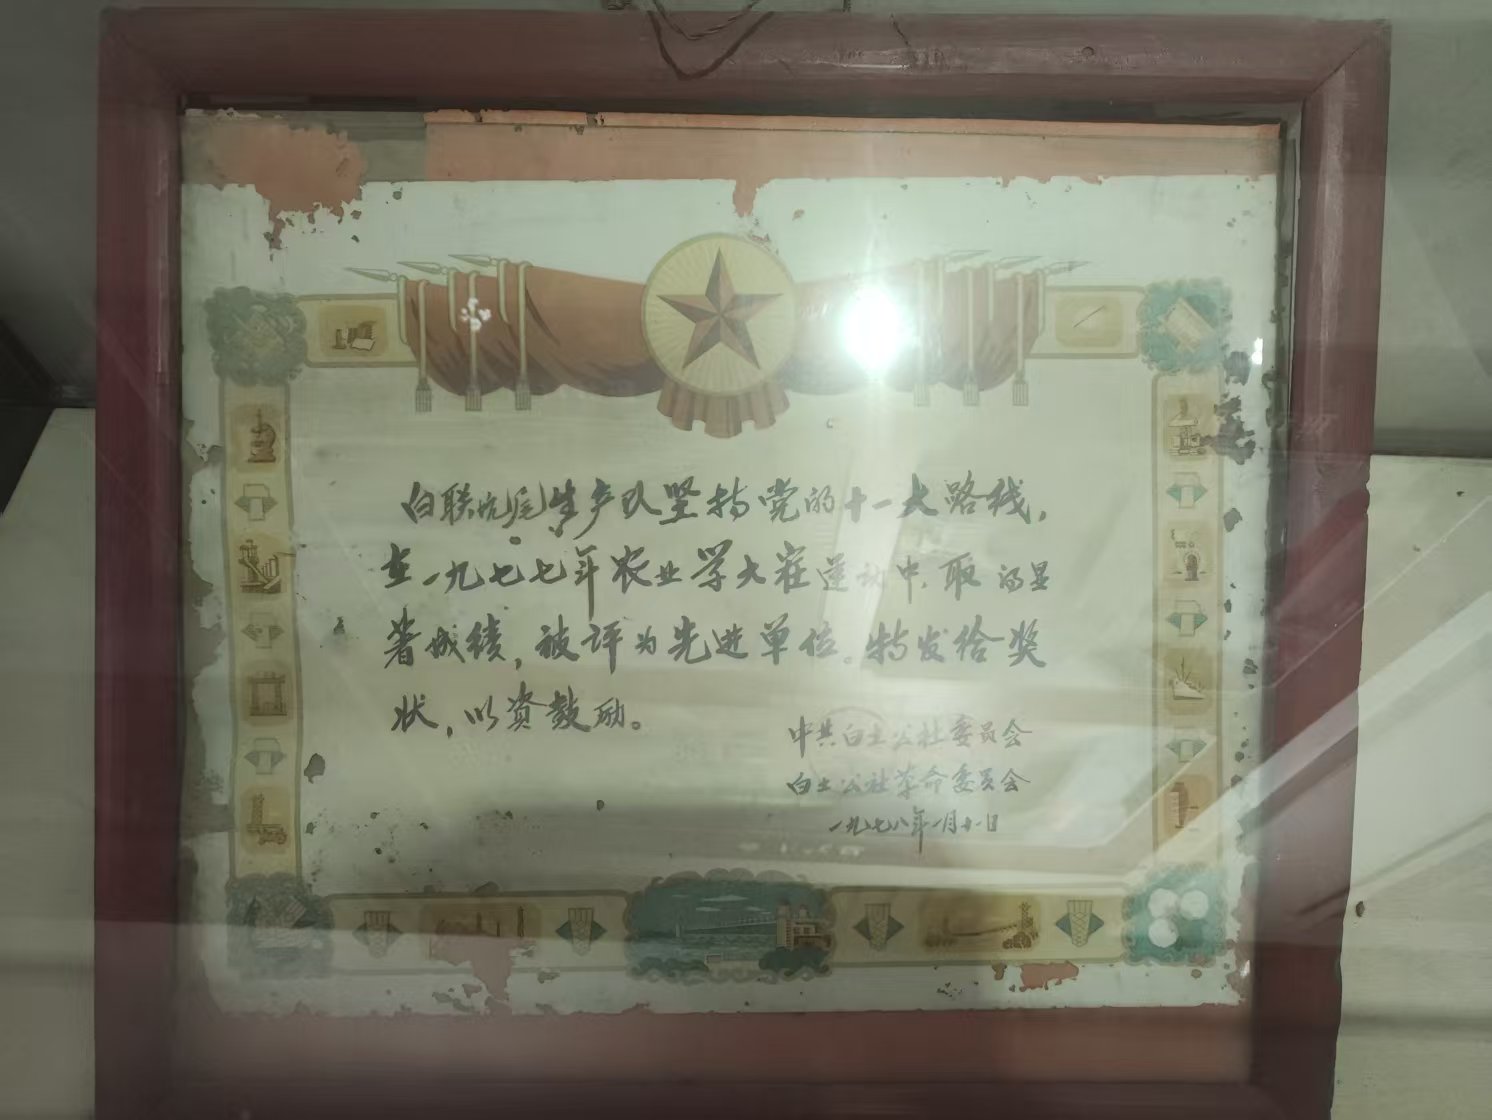 白联坑尾生产队坚持党的十一大路线，
在一九七七年农业学大寨运动中，取得显
著成绩，被评为先进单位。特发给奖
状，以资鼓励。
中共白土公社委员会
白土公社革命委员会
一九七八年一月十一日